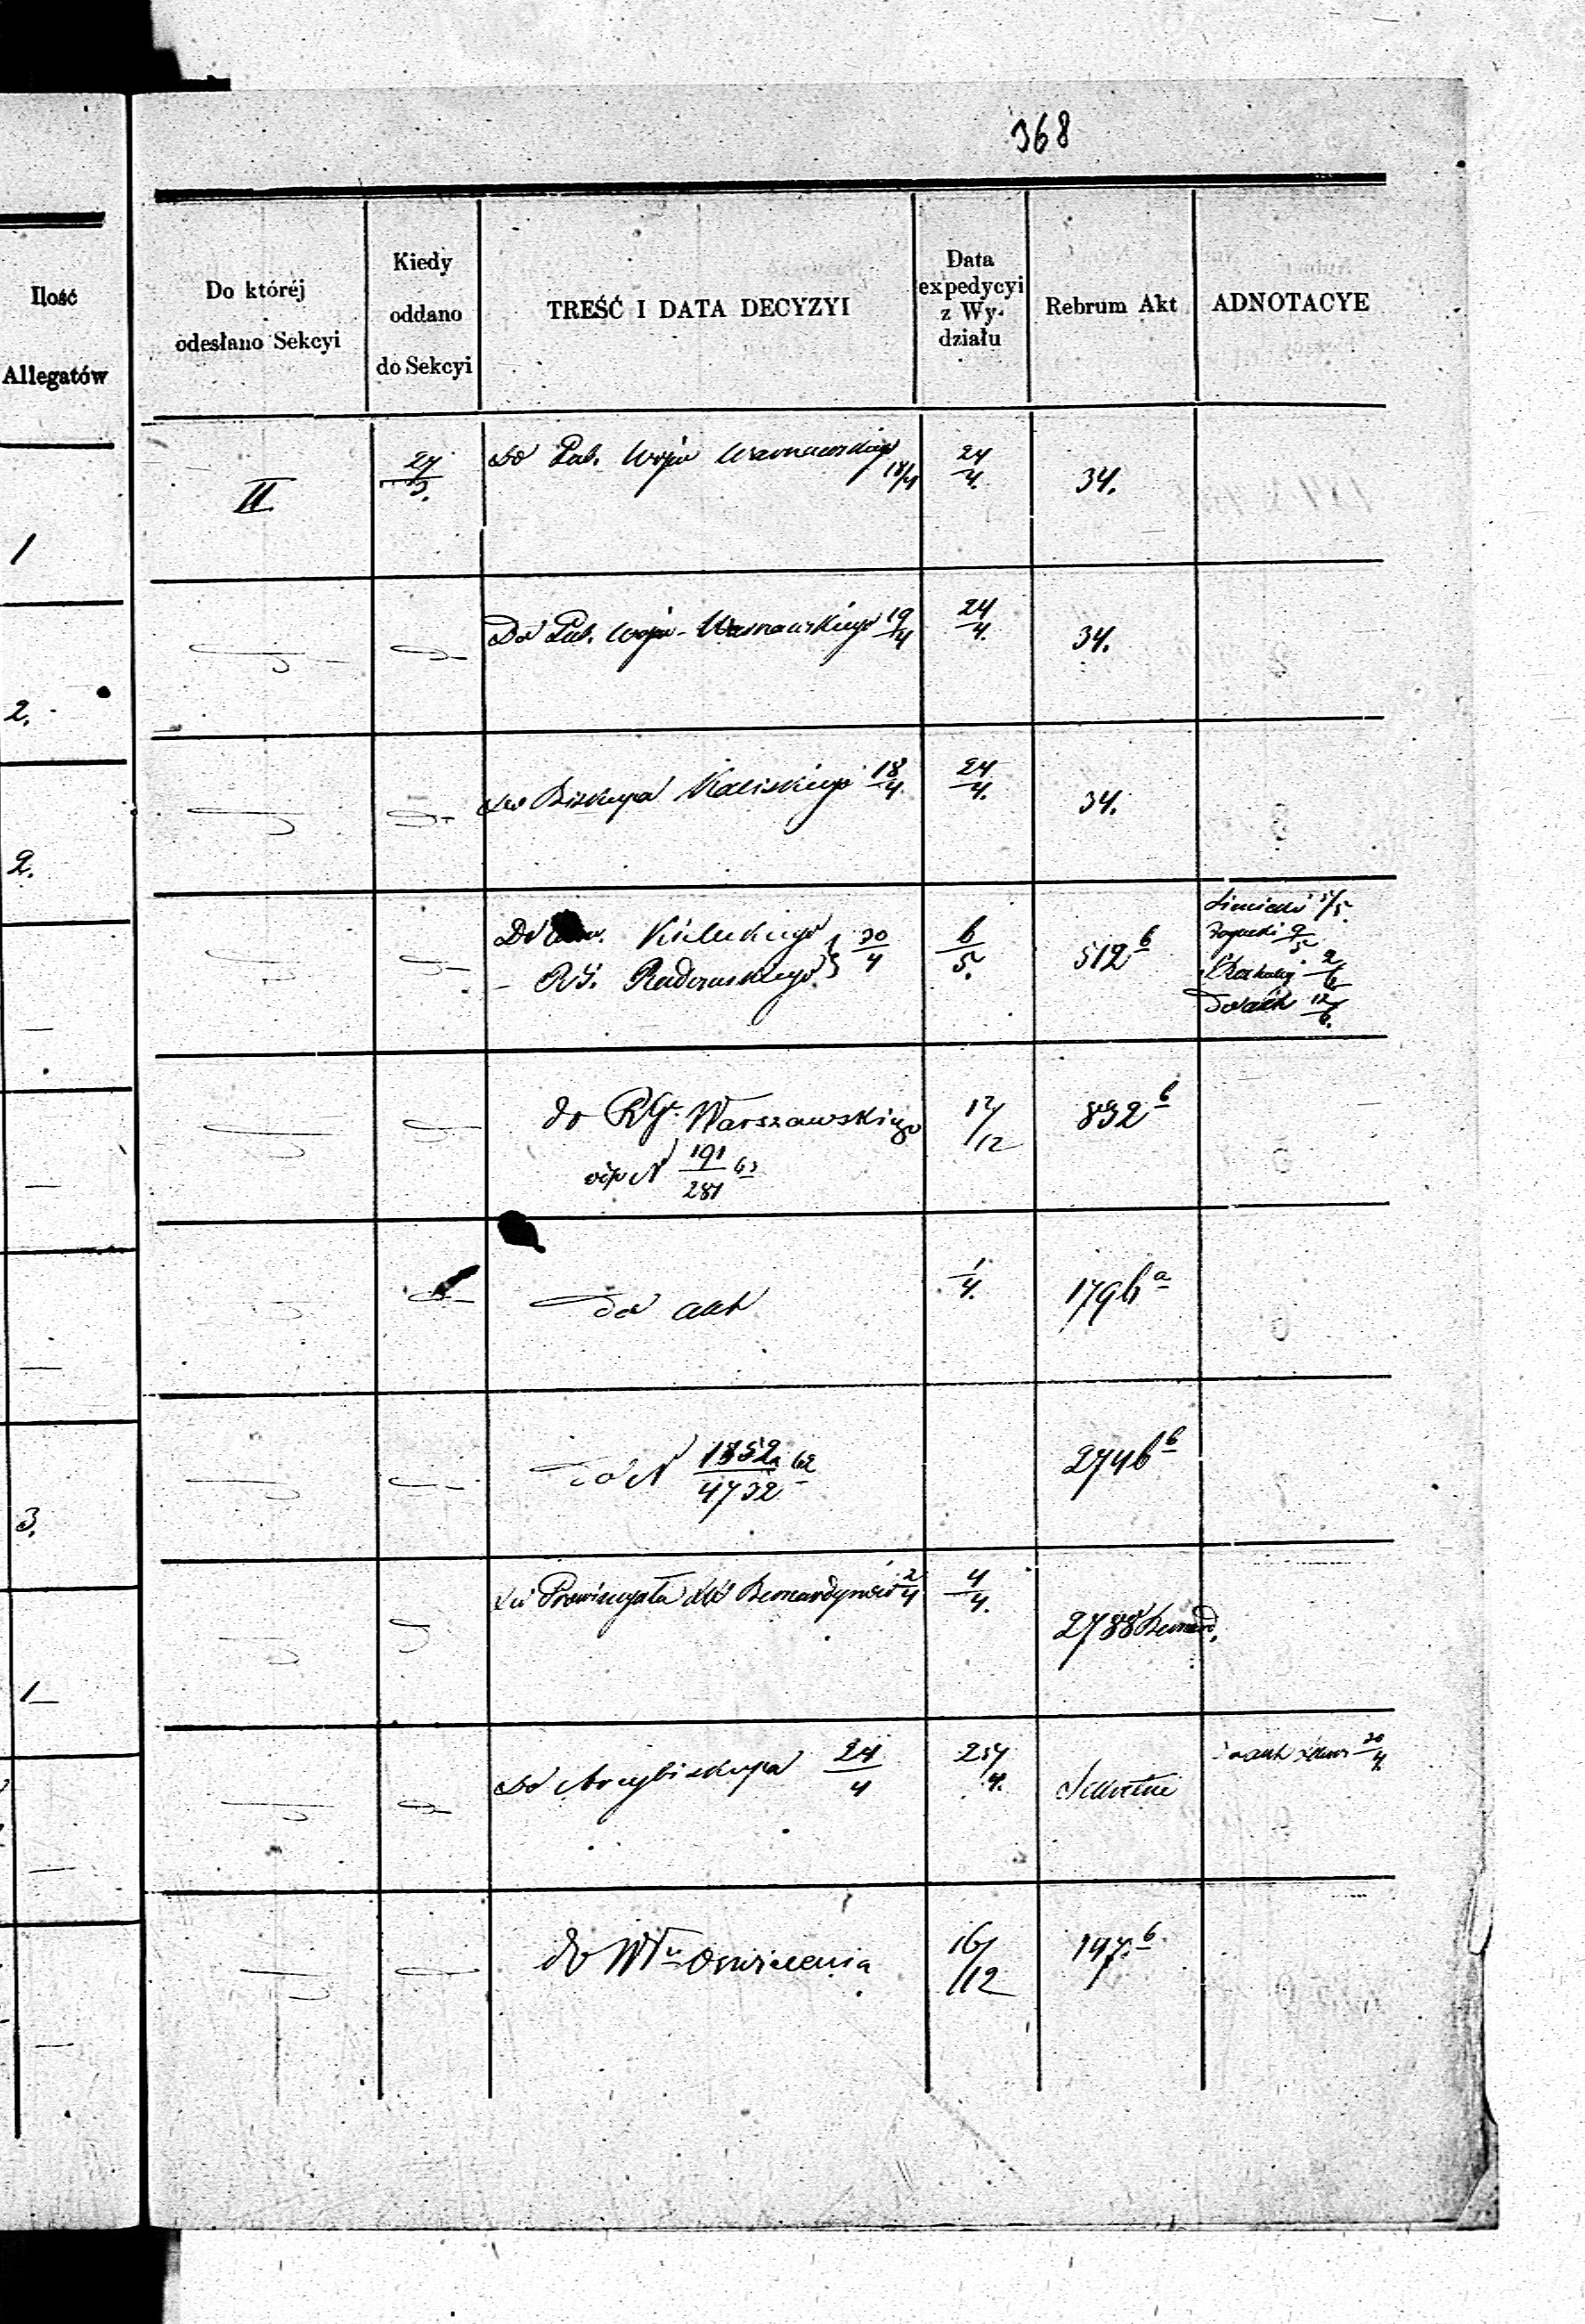 368
Ilość
Allegatów
Do któréj
odesłano Sekcyi
Kiedy
oddano
do Sekcyi
TREŚĆ I DATA DECYZYI
Data
expedycyi
z Wy-
działu
Rebrum Akt
ADNOTACYE
1
II.
27/3.
Do Gub. Wojen Warszawskiego 18/4
24/4.
34.
2.
Do Gub. Wojen. Warszawskiego 19/4
24/4.
34.
2.
Do Biskupa Kaliskiego 18/4
24/4.
34.
Do Kieleckiego
— RG. Radomskiego } 30/4
6/5.
512 b
9/5
2/6
Do akt 12/6.
do RG. Warszawskiego
N 191/281 63
17/12
892 b
do akt
1/4.
1796 a
3.
do N 1852/4732 62
2746 b
1
Do Prowincyała XX Bernardynów 2/4
4/4.
2788 Bernard.
Do Arcybiskupa 24/4
25/4.
Sekretne
30/4
do Włu Oswiecenia
16/12
147. b